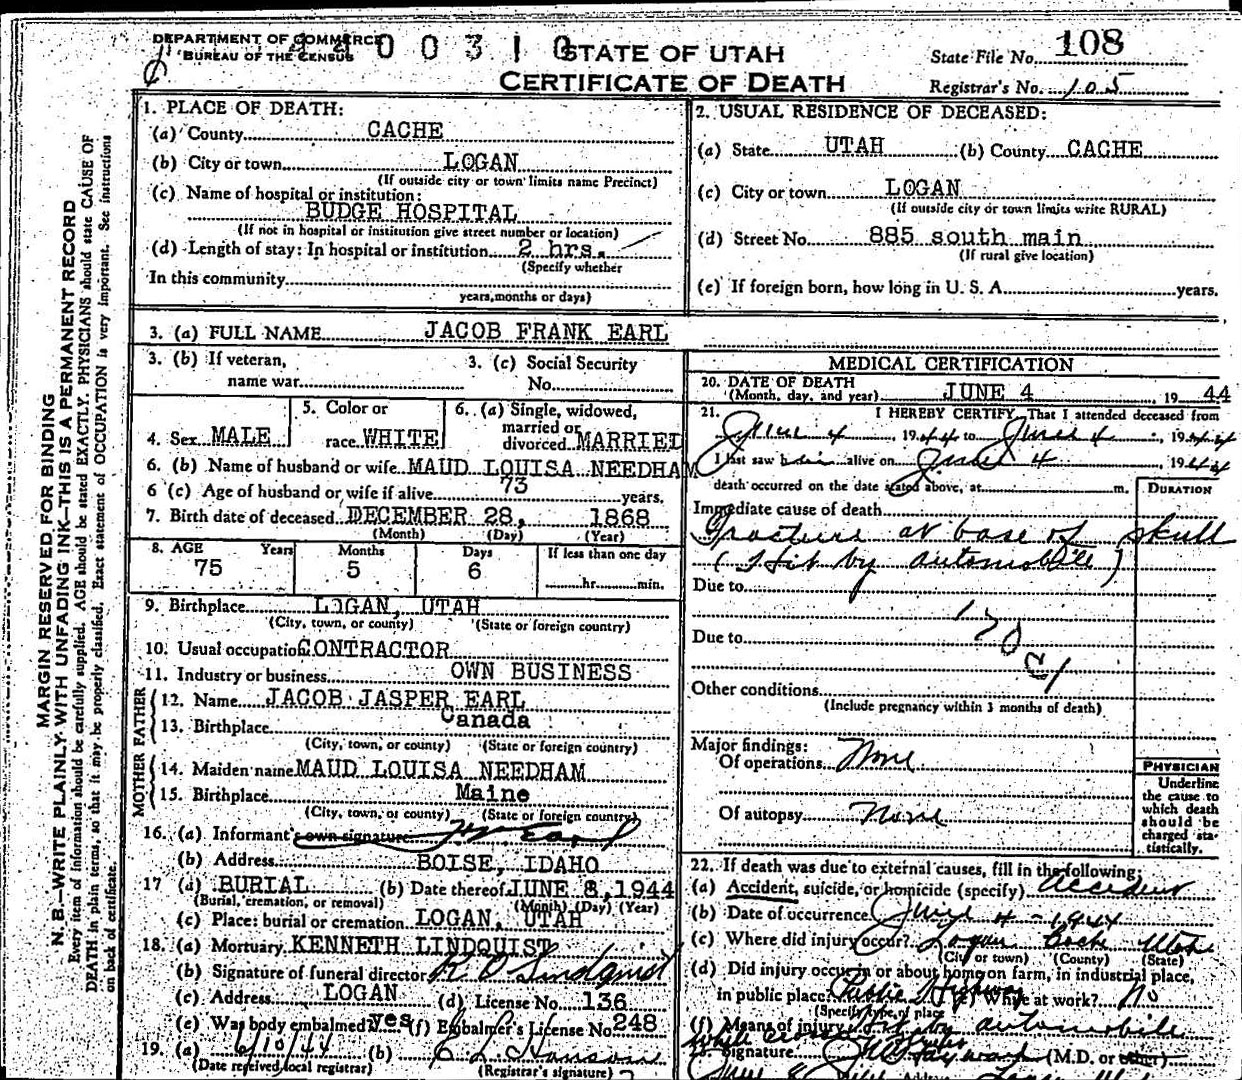 DEPARTMENT OF COMMERCE
BUREAU OF THE CENSUS
4400310
STATE OF UTAH
CERTIFICATE OF DEATH
State File No. 108
Registrar's No. 105
MARGIN RESERVED FOR BINDING
N. B.—WRITE PLAINLY WITH UNFADING INK—THIS IS A PERMANENT RECORD
Every item of information should be carefully supplied. AGE should be stated EXACTLY. PHYSICIANS should state CAUSE OF
DEATH in plain terms, so that it may be properly classified. Exact statement of OCCUPATION is very important. See instructions
on back of certificate.
1. PLACE OF DEATH:
(a) County CACHE
(b) City or town LOGAN
(If outside city or town limits name Precinct)
(c) Name of hospital or institution:
BUDGE HOSPITAL
(If not in hospital or institution give street number or location)
(d) Length of stay: In hospital or institution 2 hrs.
(Specify whether
In this community
years, months or days)
2. USUAL RESIDENCE OF DECEASED:
(a) State UTAH (b) County CACHE
(c) City or town LOGAN
(If outside city or town limits write RURAL)
(d) Street No. 885 south main
(If rural give location)
(e) If foreign born, how long in U. S. A. years.
3. (a) FULL NAME JACOB FRANK EARL
3. (b) If veteran, name war
3. (c) Social Security No.
4. Sex MALE
5. Color or race WHITE
6. (a) Single, widowed, married or divorced MARRIED
6. (b) Name of husband or wife MAUD LOUISA NEEDHAM
6 (c) Age of husband or wife if alive 73 years.
7. Birth date of deceased DECEMBER 28, 1868
(Month) (Day) (Year)
8. AGE Years Months Days If less than one day
75 5 6 hr. min.
9. Birthplace LOGAN, UTAH
(City, town, or county) (State or foreign country)
10. Usual occupation CONTRACTOR
11. Industry or business OWN BUSINESS
FATHER
12. Name JACOB JASPER EARL
13. Birthplace Canada
(City, town, or county) (State or foreign country)
MOTHER
14. Maiden name MAUD LOUISA NEEDHAM
15. Birthplace Maine
(City, town, or county) (State or foreign country)
16. (a) Informant's own signature Earl
(b) Address BOISE, IDAHO
17 (a) BURIAL (b) Date thereof JUNE 8, 1944
(Burial, cremation, or removal) (Month) (Day) (Year)
(c) Place: burial or cremation LOGAN, UTAH
18. (a) Mortuary KENNETH LINDQUIST
(b) Signature of funeral director K O Lindquist
(c) Address LOGAN (d) License No. 136
(e) Was body embalmed? yes (f) Embalmer's License No. 248
19. (a) 6/10/44 (b) E L Hanson
(Date received local registrar) (Registrar's signature)
MEDICAL CERTIFICATION
20. DATE OF DEATH
(Month, day, and year) JUNE 4, 1944
21. I HEREBY CERTIFY, That I attended deceased from
June 4, 1944 to June 4, 1944
I last saw him alive on June 4, 1944
death occurred on the date stated above, at m.
DURATION
Immediate cause of death
Fracture at base of skull
(Hit by automobile)
Due to
Due to
170
Other conditions
(Include pregnancy within 3 months of death)
Major findings:
Of operations None
Of autopsy None
PHYSICIAN
Underline
the cause to
which death
should be
charged sta-
tistically.
22. If death was due to external causes, fill in the following:
(a) Accident, suicide, or homicide (specify) Accident
(b) Date of occurrence June 4 - 1944
(c) Where did injury occur? Logan Cache Utah
(City or town) (County) (State)
(d) Did injury occur in or about home, on farm, in industrial place,
in public place? Public Highway (e) While at work? No
(Specify type of place)
(f) Means of injury Hit by automobile
while crossing
23. Signature (M.D. or other)